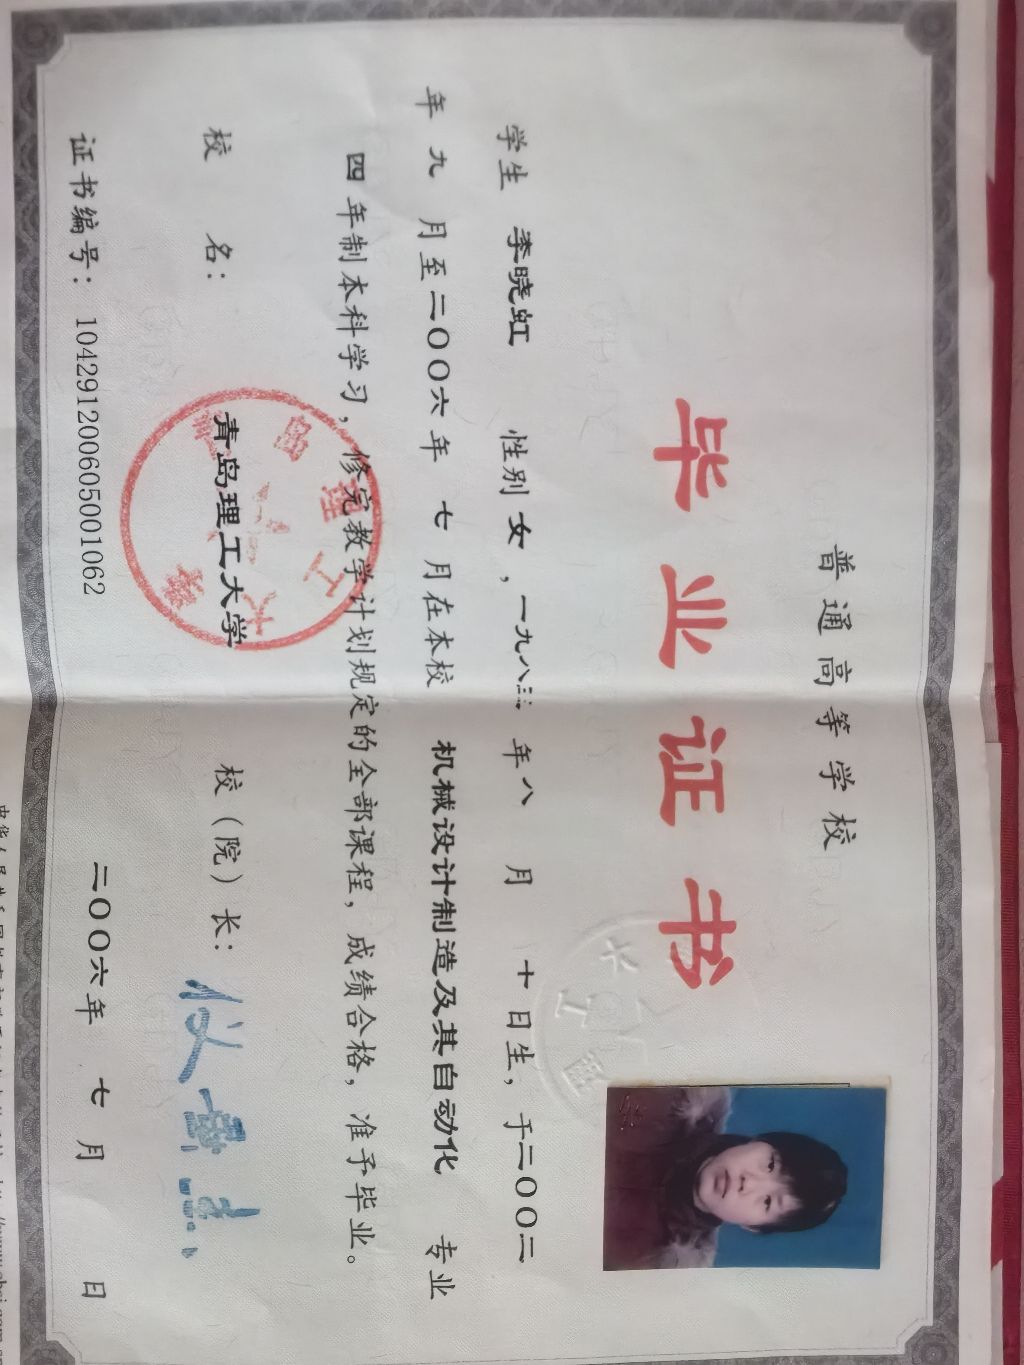 普通高等学校
毕业证书
学生 李晓虹 性别 女，一九八三年 八 月 十 日生，于二〇〇二
年 九 月至二〇〇六年 七 月在本校 机械设计制造及其自动化 专业
四年制本科学习，修完教学计划规定的全部课程，成绩合格，准予毕业。
校 名： 青岛理工大学 校（院）长：
证书编号： 104291200605001062 二〇〇六年 七 月 日